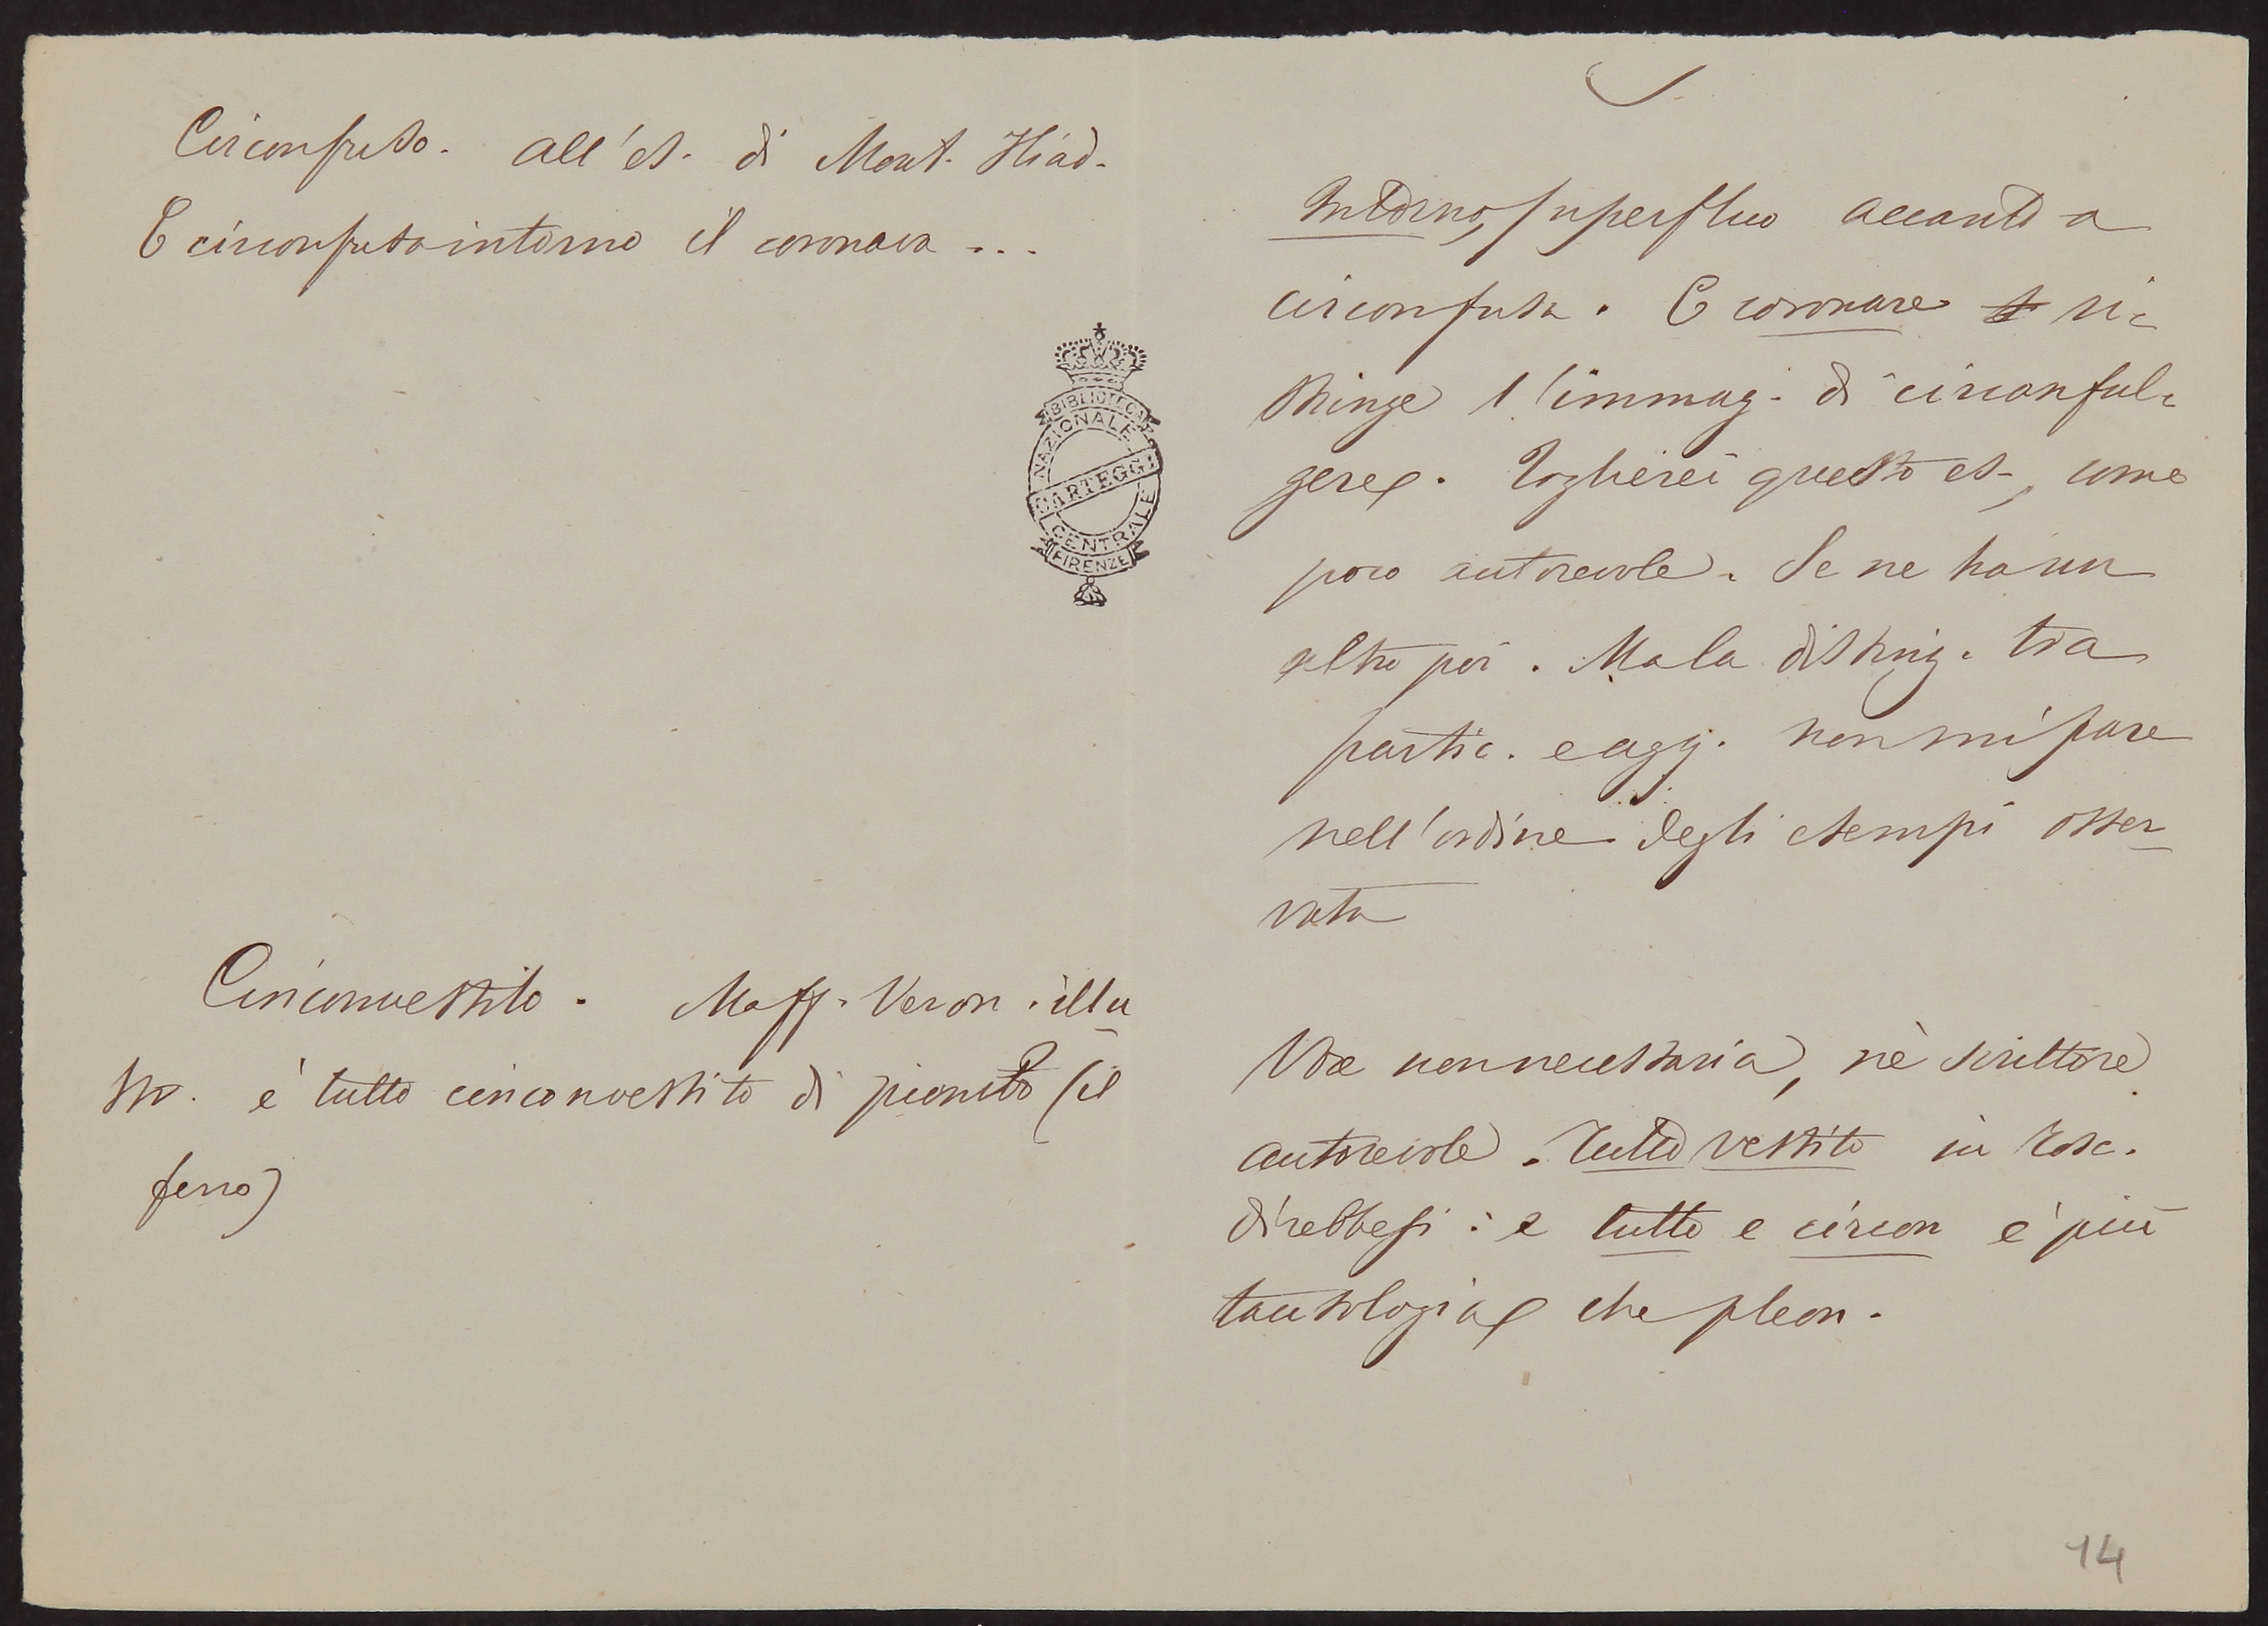 Circonfuso. All'es. di Mont. Iliad.
E circonfusa intorno il coronava ...
BIBLIOTECA
NAZIONALE
CARTEGGI
CENTRALE
FIRENZE
Circonvestito. Maff. Veron. illu
str. è tutto circonvestito di piombo (il
ferro)
Intorno, superfluo accanto a
circonfusa. E coronare ri-
stringe l'immag. di circonful-
gere. Toglierei questo es., come
poco autorevole. Se ne ha un
altro poi. Ma la disting. tra
partic. e agg. non mi pare
nell'ordine degli esempi osser-
vata
Voce non necessaria, nè scrittore
autorevole. Tutto vestito in Tosc.
direbbesi: e tutto e circon è più
tautologia che pleon.
14